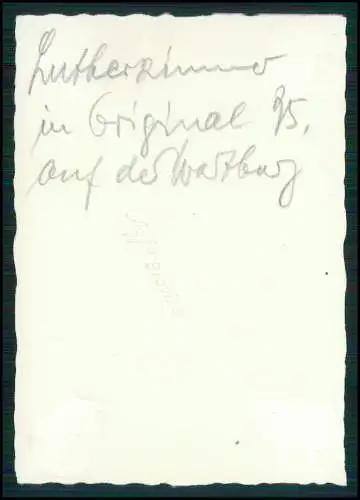 Lutherzimmer
in Original 95.
auf der Wartburg